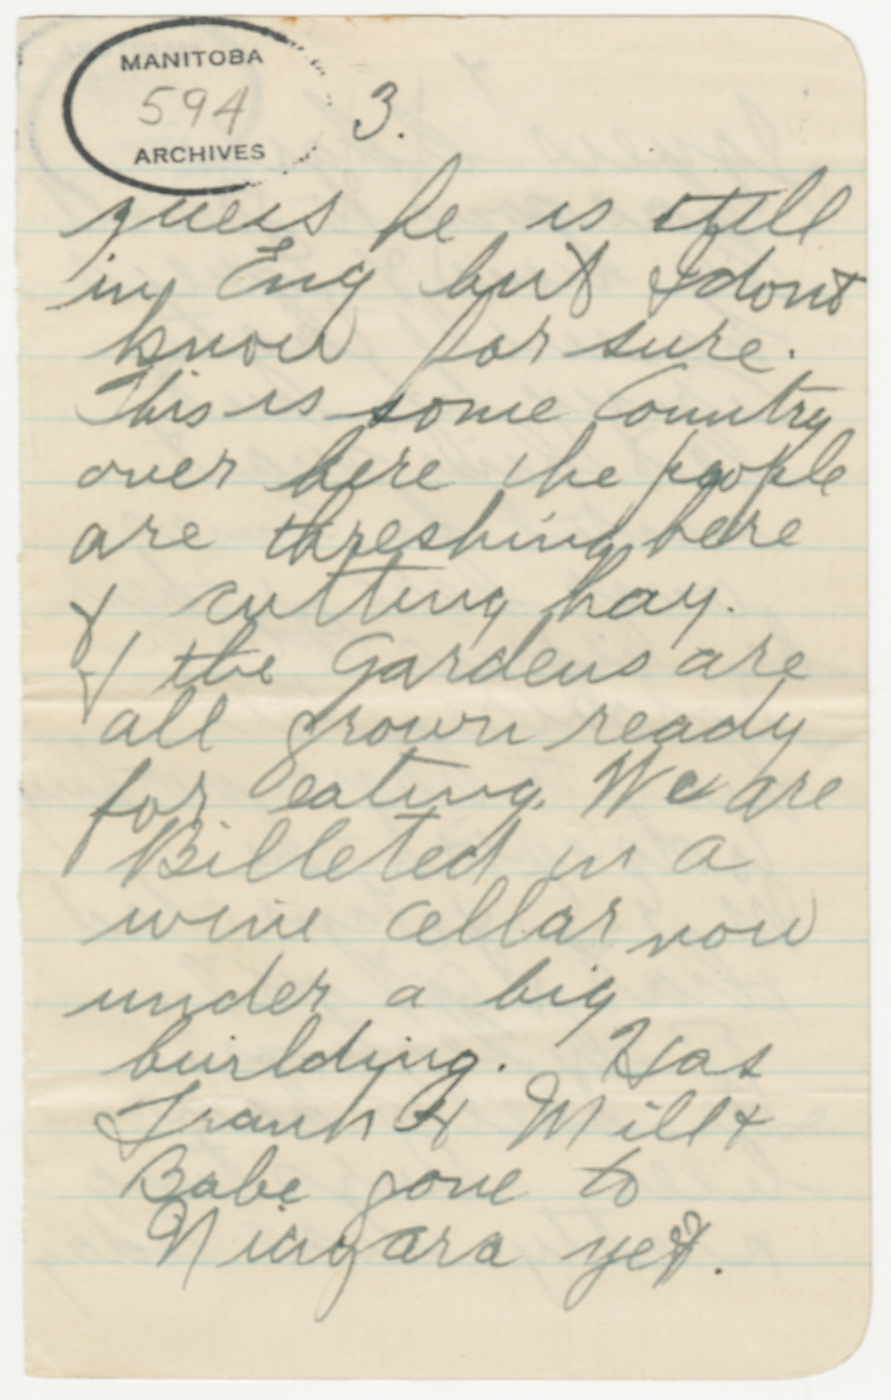 MANITOBA
594
ARCHIVES
3.
guess he is still
in Eng but I dont
know for sure.
This is some Country
over here the people
are threshing here
& cutting hay.
& the Gardens are
all grown ready
for eating. We are
Billeted in a
wine cellar now
under a big
building. Has
Frank H Mill &
Babe gone to
Niagara yet.